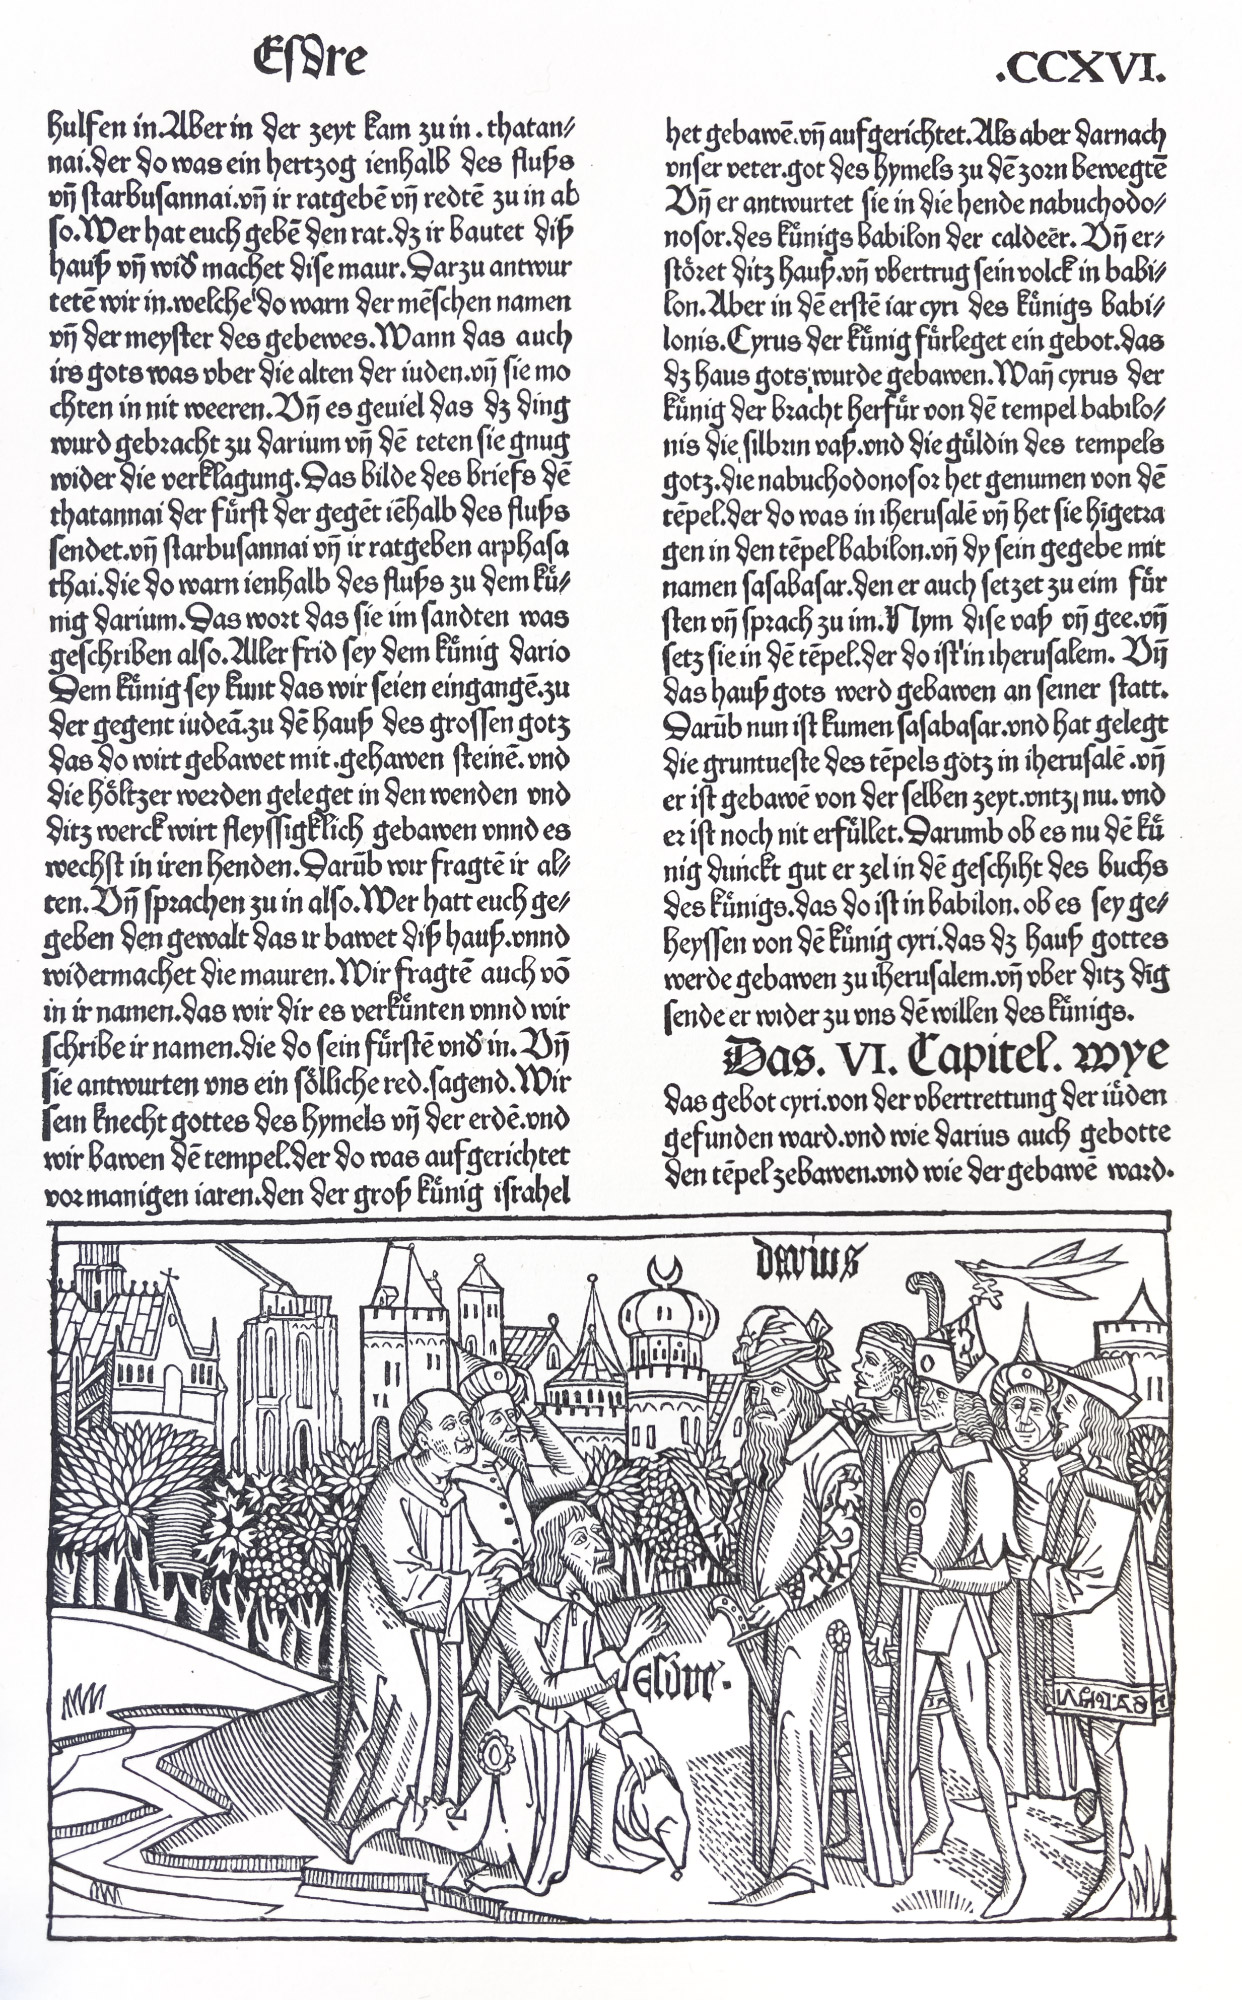 Esdre
.CCXVI.
hulfen in.Aber in der zeyt kam zu in . thatan⸗
nai.der do was ein hertzog ienhalb des fluſs
vñ ſtarbuſannai.vñ ir ratgebē vñ redtē zu in ab
ſo.Wer hat euch gebē den rat.dz ir bautet diß
hauß vñ wid᷑ machet diſe maur.Darzu antwur
tetē wir in.welche do warn der mēſchen namen
vñ der meyſter des gebewes.Wann das auch
irs gots was vber die alten der iuden.vñ ſie mo
chten in nit weeren.Vñ es geuiel das dz ding
wurd gebracht zu darium vñ dē teten ſie gnug
wider die verklagung.Das bilde des briefs dē
thatannai der fuͤrſt der gegēt iēhalb des fluſs
ſendet.vñ ſtarbuſannai vñ ir ratgeben arphaſa
thai.die do warn ienhalb des fluſs zu dem kuͤ⸗
nig darium.Das wort das ſie im ſandten was
geſchriben alſo.Aller frid ſey dem kuͤnig dario
Dem kuͤnig ſey kunt das wir ſeien eingangē.zu
der gegent iudeā.zu dē hauß des groſſen gotz
das do wirt gebawet mit .gehawen ſteinē. vnd
die hoͤltzer werden geleget in den wenden vnd
ditz werck wirt fleyſſigklich gebawen vnnd es
wechſt in iren henden.Darūb wir fragtē ir al⸗
ten.Vñ ſprachen zu in alſo.Wer hatt euch ge⸗
geben den gewalt das ir bawet diß hauß.vnnd
widermachet die mauren.Wir fragtē auch vō
in ir namen.das wir dir es verkuͤnten vnnd wir
ſchribe ir namen.die do ſein fuͤrſtē vnd᷑ in. Vñ
ſie antwurten vns ein ſoͤlliche red.ſagend.Wir
ſein knecht gottes des hymels vñ der erdē.vnd
wir bawen dē tempel.der do was aufgerichtet
vor manigen iaren.den der groß kuͤnig iſrahel
het gebawē.vñ aufgerichtet.Als aber darnach
vnſer veter.got des hymels zu dē zorn bewegtē
Vñ er antwurtet ſie in die hende nabuchodo⸗
noſor.des kuͤnigs babilon der caldeēr. Vñ er⸗
ſtoͤret ditz hauß.vñ vbertrug ſein volck in babi⸗
lon.Aber in dē erſtē iar cyri des kuͤnigs babi⸗
lonis.Cyrus der kuͤnig fuͤrleget ein gebot.das
dz haus gots wurde gebawen.Wañ cyrus der
kuͤnig der bracht herfuͤr von dē tempel babilo⸗
nis die ſilbrin vaß.vnd die guͤldin des tempels
gotz.die nabuchodonoſor het genumen von dē
tēpel.der do was in iheruſalē vñ het ſie hīgetra
gen in den tēpel babilon.vñ dy ſein gegebē mit
namen ſaſabaſar.den er auch ſetzet zu eim fuͤr
ſten vñ ſprach zu im.Nym diſe vaß vñ gee.vñ
ſetz ſie in dē tēpel.der do iſt in iheruſalem. Vñ
das hauß gots werd gebawen an ſeiner ſtatt.
Darūb nun iſt kumen ſaſabaſar.vnd hat gelegt
die gruntueſte des tēpels gotz in iheruſalē .vñ
er iſt gebawē von der ſelben zeyt.vntz nu. vnd
er iſt noch nit erfuͤllet.Darumb ob es nu dē kuͤ
nig dunckt gut er zel in dē geſchiht des buchs
des kuͤnigs.das do iſt in babilon. ob es ſey ge⸗
heyſſen von dē kuͤnig cyri.das dz hauß gottes
werde gebawen zu iheruſalem.vñ vber ditz dīg
ſende er wider zu vns dē willen des kuͤnigs.
Das. VI. Capitel. wye
das gebot cyri.von der vbertrettung der iuͤden
gefunden ward.vnd wie darius auch gebotte
den tēpel zebawen.vnd wie der gebawē ward.
darius
Esdre.